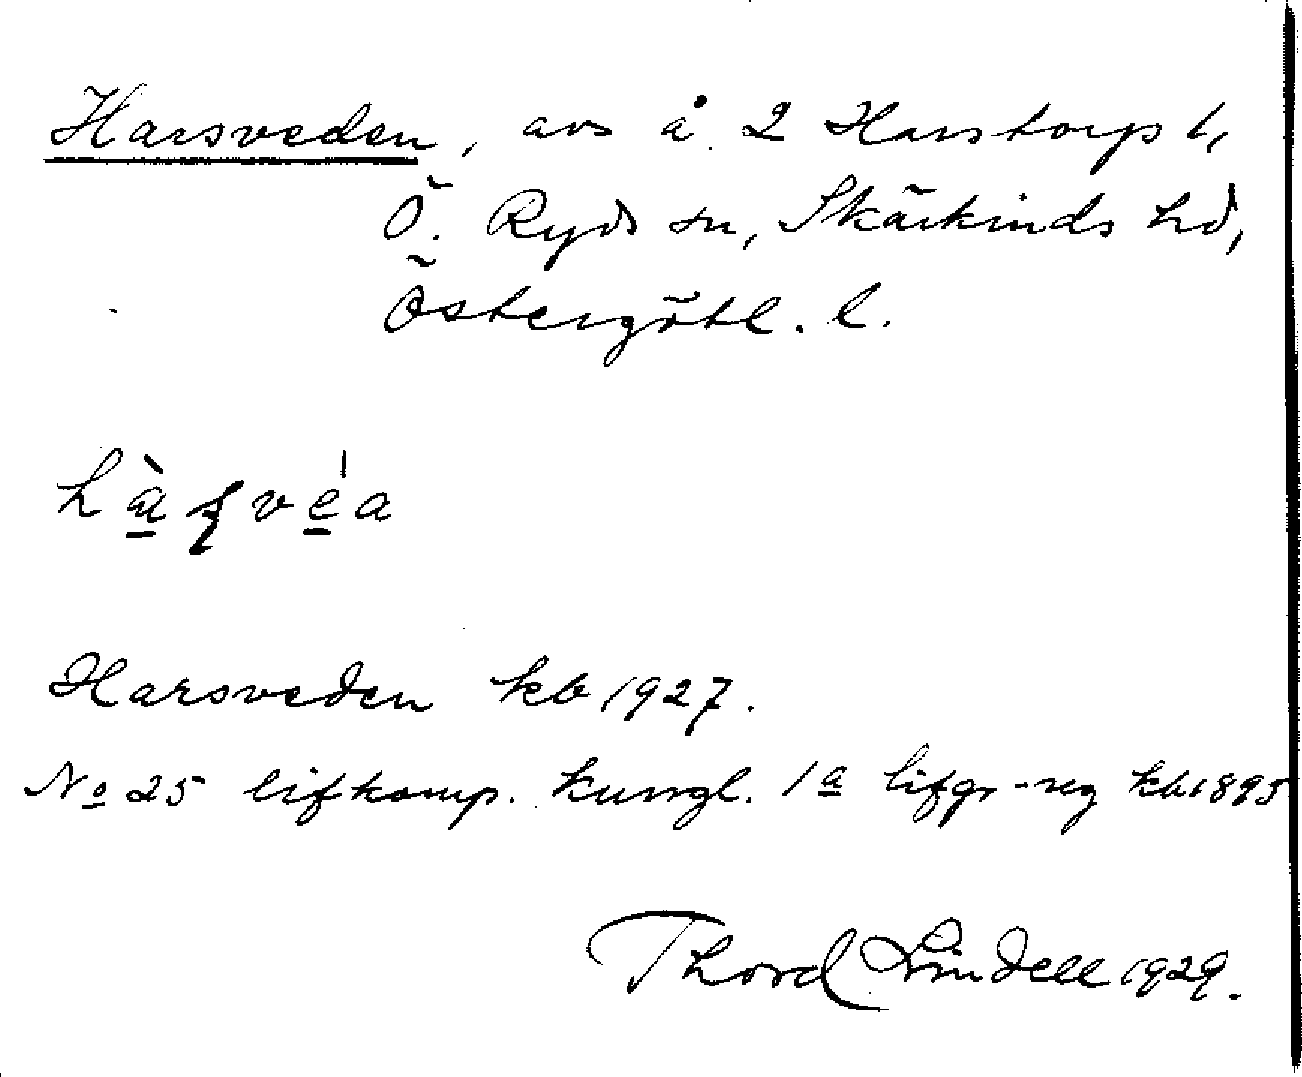 Harsveden, avs å 2 Harstorp 1,
Ö. Ryds sn, Skärkinds hd,
Östergötl. l.
Harsveden kb 1927.
No 25 lifkomp. kungl. 1a lifgr-reg kb 1895
Thord Lindell 1929.